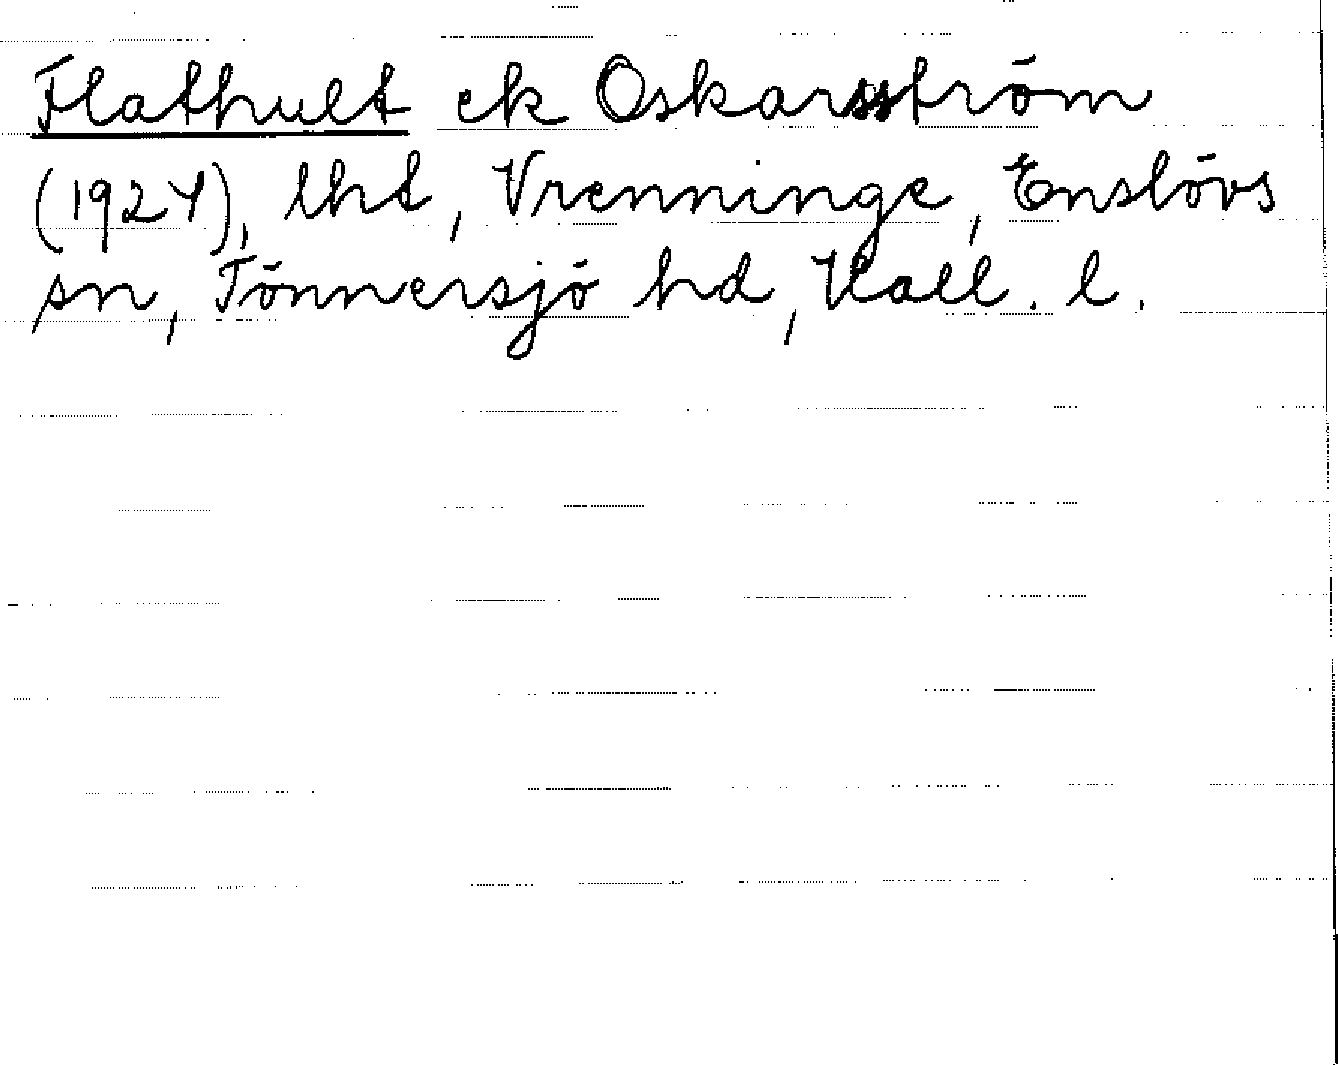 Flathult ek Oskarsström
(1927), lht, Vrenninge, Enslövs
sn, Tönnersjö hd, Hall. l.